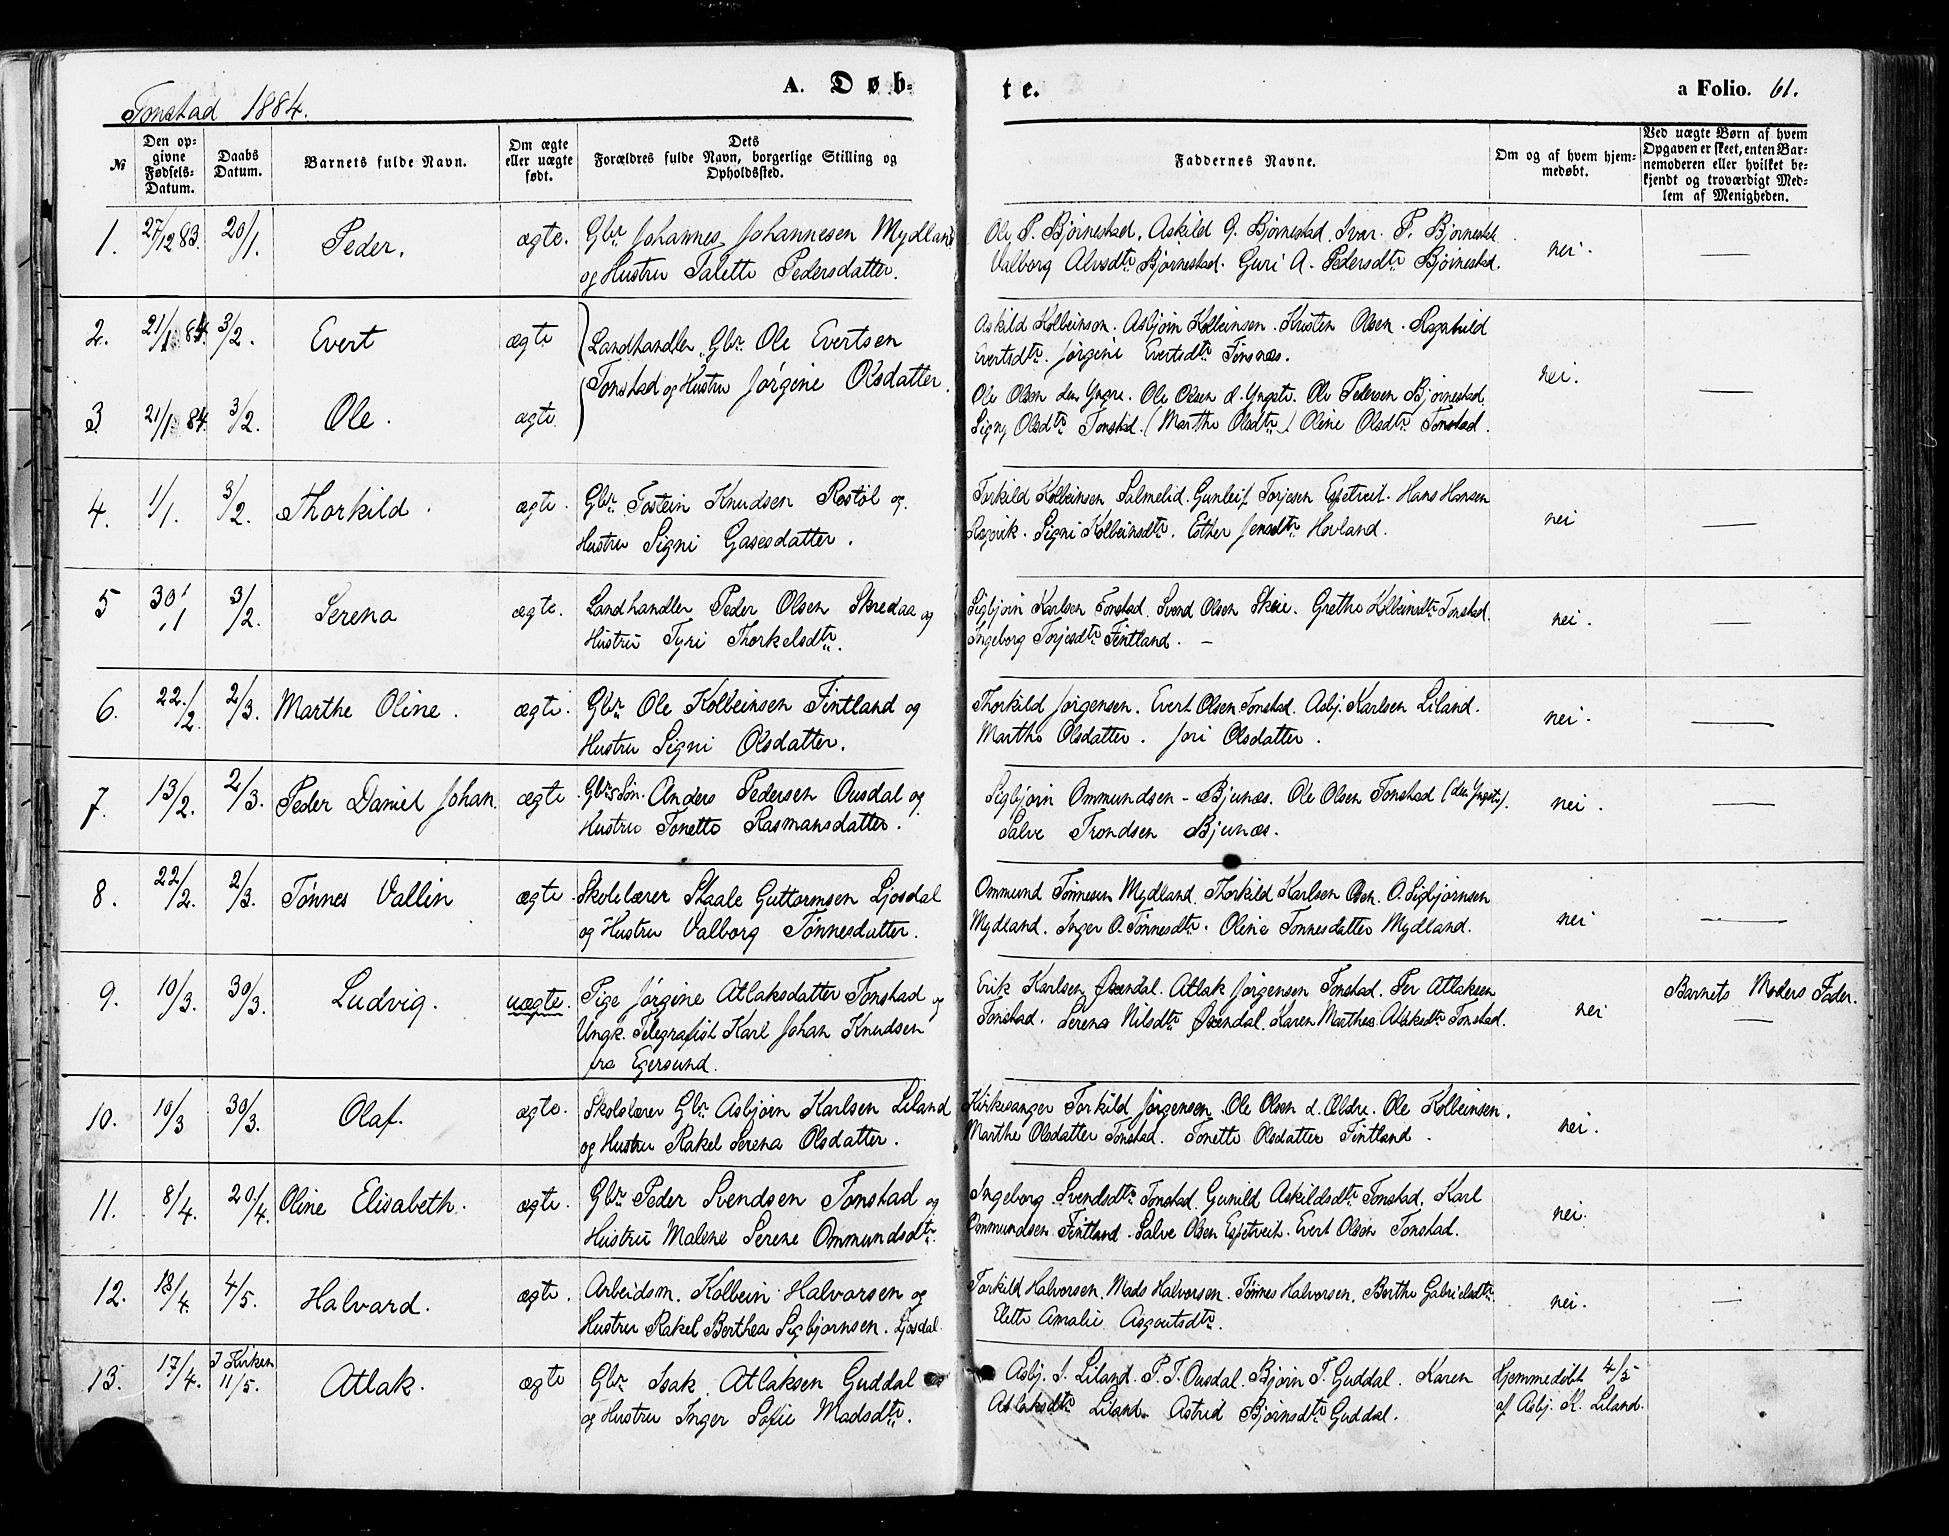 Tonstad 1884.
A. Døb-
te.
a Folio. 61.
№
Den op-
givne
Fødsels-
Datum.
Daabs
Datum.
Barnets fulde Navn.
Om ægte
eller uægte
født.
Dets
Forældres fulde Navn, borgerlige Stilling og
Opholdssted.
Faddernes Navne.
Om og af hvem hjem-
medøbt.
Ved uægte Børn af hvem
Opgaven er skeet, enten Bar-
nemoderen eller hvilket be-
kjendt og troværdigt Med-
lem af Menigheden.
1. 27/12 83. 20/1. Peder. ægte. Gbr. Johannes Johannesen Mydland
og Hustru Talette Pedersdatter.
Ole P. Bjørnestad. Askild O. Bjørnestad. Ivar P. Bjørnestd.
Valborg Alvsdtr Bjørnestad. Guri A. Pedersdtr Bjørnestad.
nei. —
2. 21/1 84. 3/2. Evert ægte Landhandler, Gbr. Ole Evertsen
Askild Kolbeinson. Asbjørn Kolbeinsen. Kristen Olsen. Ragnhild
Evertsdtr. Jørgine Evertsdtr Tonsnæs.
Tonstad og Hustru Jørgine Olsdatter.
nei. —
3. 21/1 84. 3/2. Ole. ægte
Ole Olsen den Yngre. Ole Olsen d. Yngste. Ole Pedersen Bjørnestad.
Signe Olsdtr Tonstad. (Marthe Olsdtr) Oline Olsdtr Tonstad.
4. 1/1. 3/2. Thorkild. ægte. Gbr. Tostein Knudsen Røstøl og
Hustru Signi Gasesdatter.
Torkild Kolbeinsen Salmelid. Gunleif Torjesen Espetveit. Hans Hansen
Røgvik. Signi Kolbeinsdtr. Esther Jensdtr Hovland.
nei —
5 30/1 3/2. Serena ægte. Landhandler Peder Olsen Skredaa og
Hustru Tyri Thorkelsdtr.
Sigbjørn Karlsen Tonstad. Svend Olsen Skeie. Grethe Kolbeinsdtr Tonstad.
Ingeborg Torjesdtr Fintland. —
nei. —
6. 22/2. 2/3. Marthe Oline. ægte. Gbr. Ole Kolbeinsen Fintland og
Hustru Signi Olsdatter.
Thorkild Jørgensen. Evert Olsen Tonstad. Asbj. Karlsen Liland.
Marthe Olsdatter. Jori Olsdatter.
nei. —
7. 13/2. 2/3. Peder Daniel Johan. ægte Gbrs Søn. Anders Pedersen Ousdal og
Hustru Tonette Rasmansdatter.
Sigbjørn Ommundsen - Bjunæs. Ole Olsen Tonstad (den Yngste).
Salve Trondsen Bjunæs.
nei. —
8. 22/2. 2/3. Tønnes Vallin ægte. Skolelærer Staale Guttormsen Ljosdal
og Hustru Valborg Tønnesdatter.
Ommund Tønnesen Mydland. Thorkild Karlsen Osen. O. Sigbjørnsen
Mydland. Inger O. Tønnesdtr. Oline Tønnesdatter Mydland.
nei —
9. 10/3. 30/3. Ludvig. uægte. Pige Jørgine Atlaksdatter Tonstad og
Ungk. Telegrafist Karl Johan Knudsen
fra Egersund.
Erik Karlsen Øxendal. Atlak Jørgensen Tonstad. Per Atlaksen
Tonstad. Serena Nilsdtr Øxendal. Karen Marthea Atlaksdtr Tonstad.
nei Barnets Moders Fader.
—
10. 10/3 30/3. Olaf. ægte. Skolelærer Gbr. Asbjørn Karlsen Liland
og Hustru Rakel Serena Olsdatter.
Kirkesanger Torkild Jørgensen. Ole Olsen d. Ældre. Ole Kolbeinsen.
Marthe Olsdatter Tonstad. Tonette Olsdatter Fintland.
nei.
11. 8/4. 20/4. Oline Elisabeth. ægte. Gbr. Peder Svendsen Tonstad og
Hustru Malene Serene Ommundsdtr.
Ingeborg Svendsdtr Tonstad. Gunild Askildsdtr Tonstad. Karl
Ommundsen Fintland. Salve Olsen Espetveit. Evert Olsen Tonstad.
nei. —
12. 18/4. 4/5. Halvard. ægte. Arbeidsm. Kolbein Halvorsen og
Hustru Rakel Berthea Sigbjørnsen. Ljosdal
Torkild Halvorsen. Mads Halvorsen. Tønnes Halvorsen. Berthe Gabrielsdtr.
Elette Amalie Asgautsdtr.
nei. —
13. 17/4. I Kirken
11/5. Atlak. ægte Gbr. Isak Atlaksen Guddal
og Hustru Inger Sofie Madsdtr.
Asbj. J. Liland. P. T. Ousdal. Bjørn T. Guddal. Karen
Atlaksdtr Liland. Astrid Bjørnsdtr Guddal.
Hjemmedøbt 4/5
af Asbj. K. Liland.